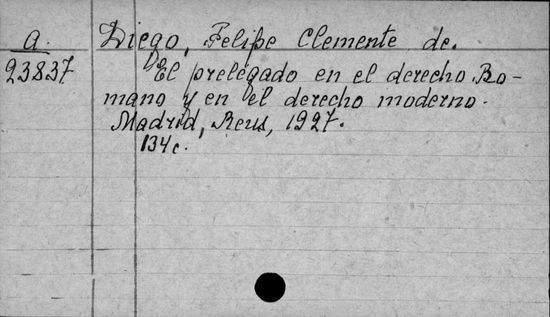 A. Diego, Felipe Clemente de.
23837 El prelegado en el derecho Ro-
mano y en el derecho moderno.
Madrid, Reus, 1927.
134c.